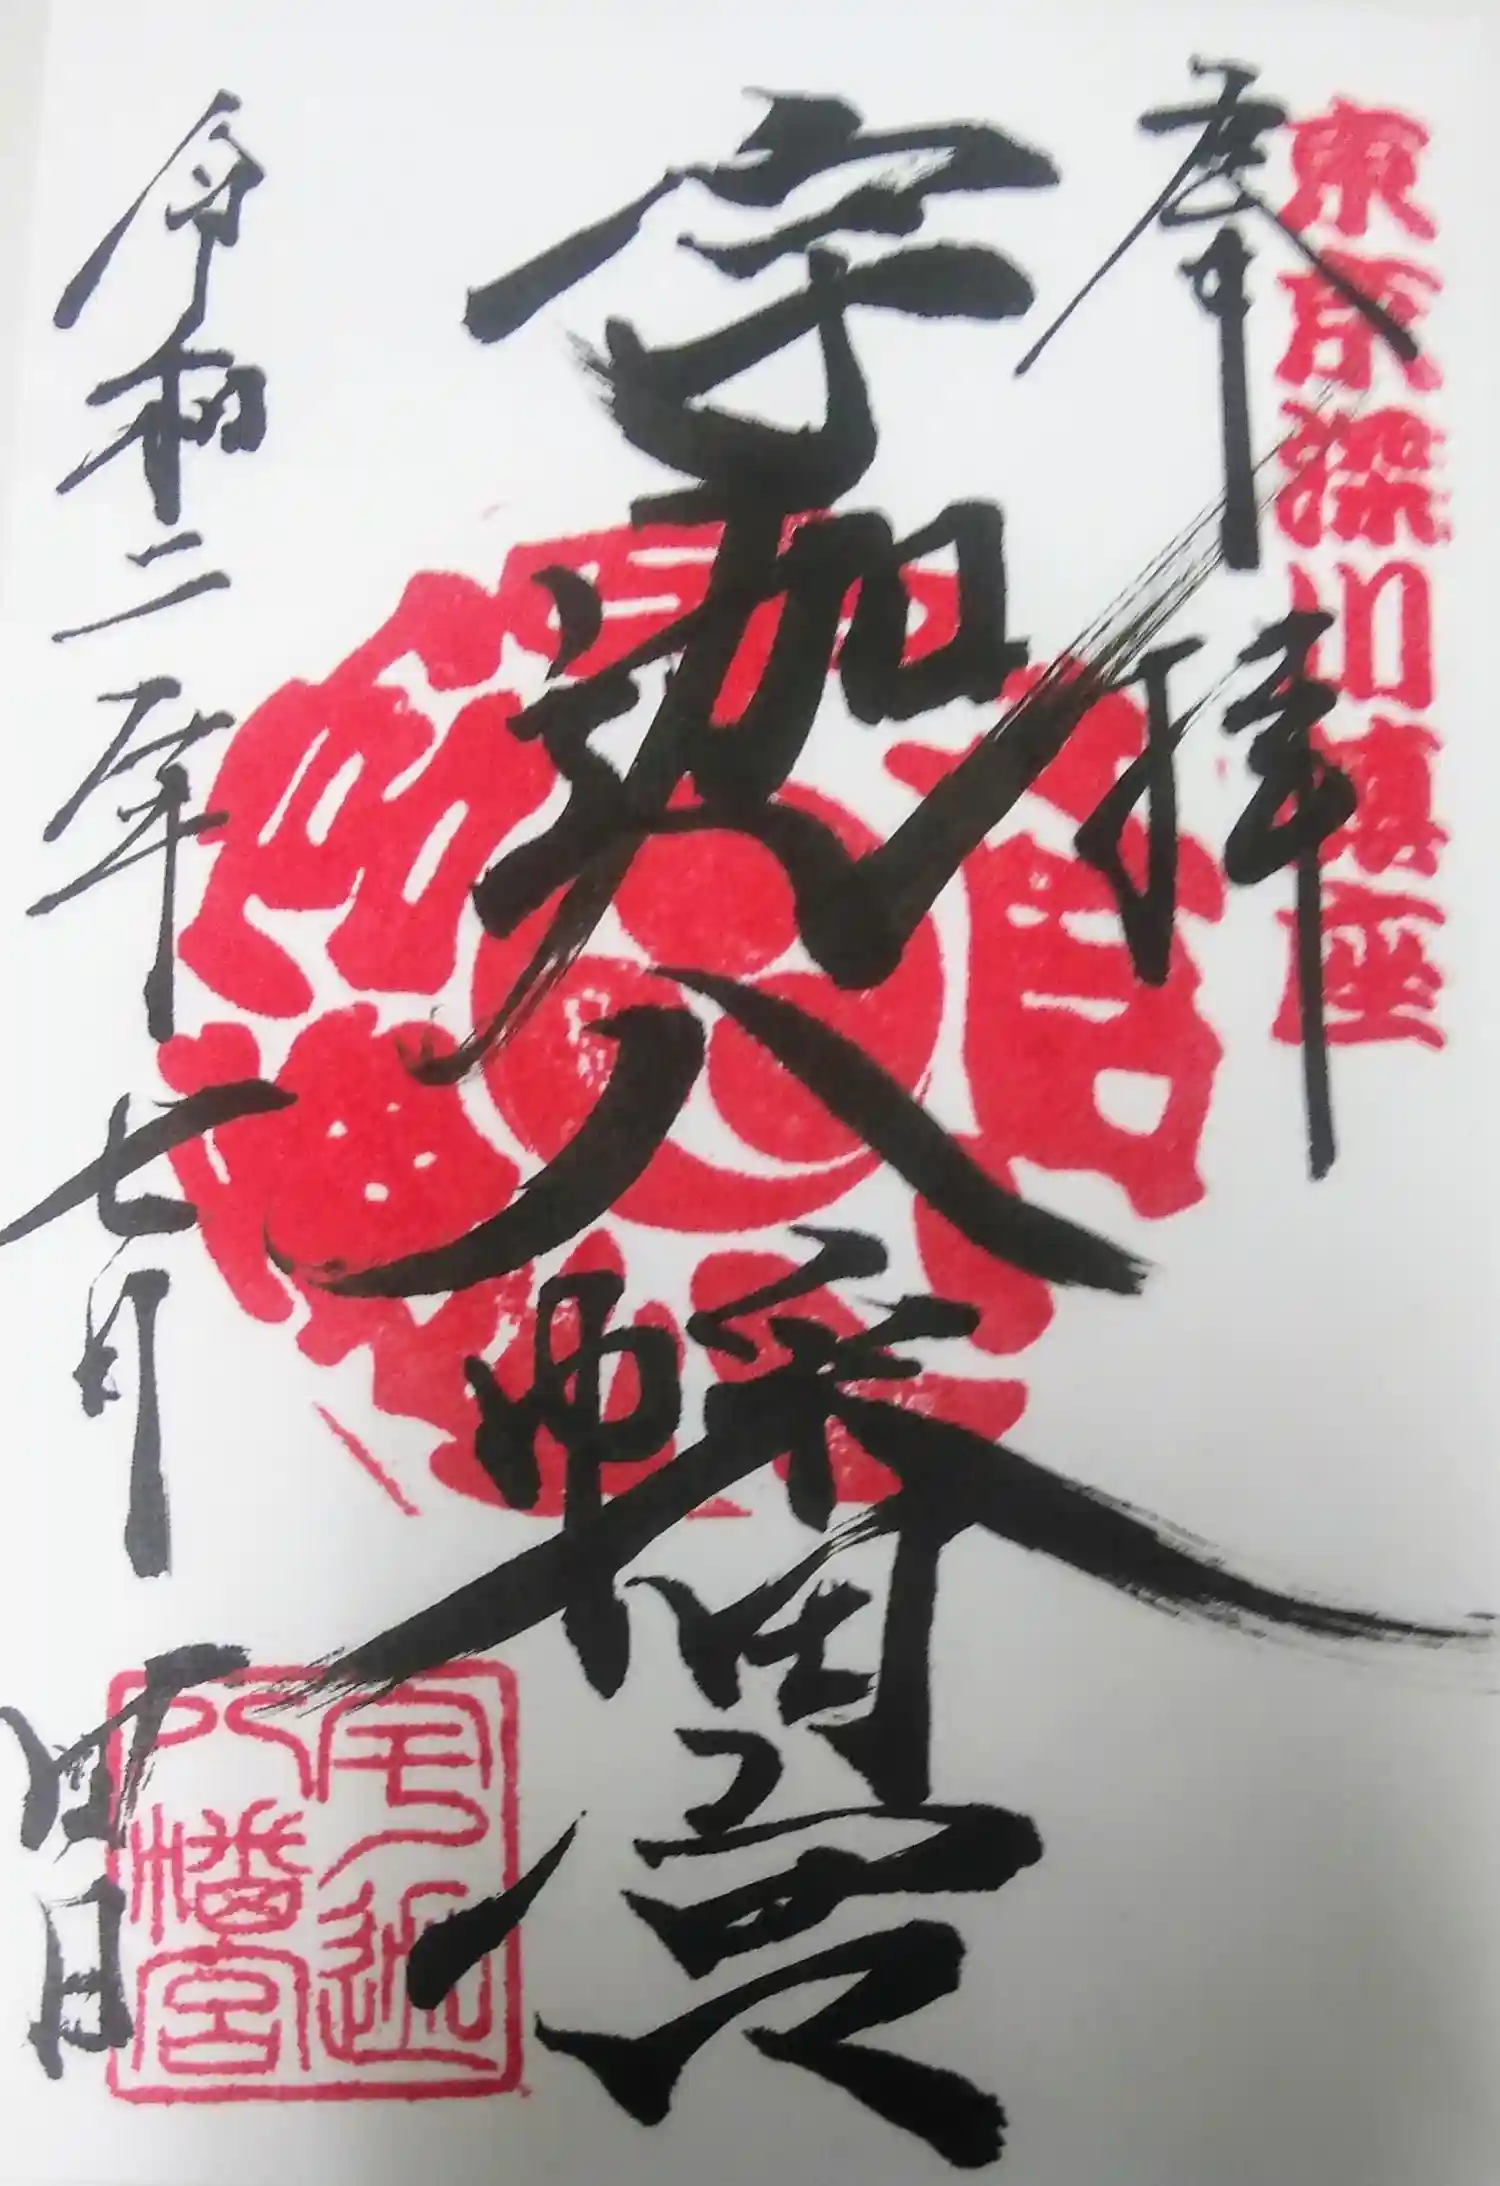 東京深川鎮座
奉拝
宇迦八幡宮
令和二年七月四日
宇迦
八幡宮